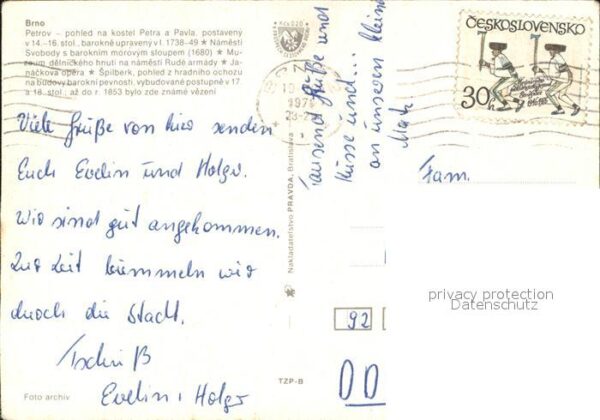 Brno
Petrov – pohled na kostel Petra a Pavla, postavený
v 14.-16. stol., barokně upravený v l. 1738-49 ★ Náměstí
Svobody s barokním morovým sloupem (1680) ★ Mu-
zeum dělnického hnutí na náměstí Rudé armády ★ Ja-
náčkova opera ★ Špilberk, pohled z hradního ochozu
na budovy barokní pevnosti, vybudované postupně v 17.
a 18. stol., až do r. 1853 bylo zde známé vězení
Viele Grüße von hier senden
Euch Evelin und Holger.
Wir sind gut angekommen.
Zur Zeit bummeln wir
durch die Stadt.
Tschüß
Evelin, Holger
Foto archiv
Tausend Grüße und
Küsse und...
an unseren kleinen
Matz
Nakladatelství PRAVDA, Bratislava
TZP-B
ČESKOSLOVENSKO
30h
Fam.
privacy protection
Datenschutz
92
DD